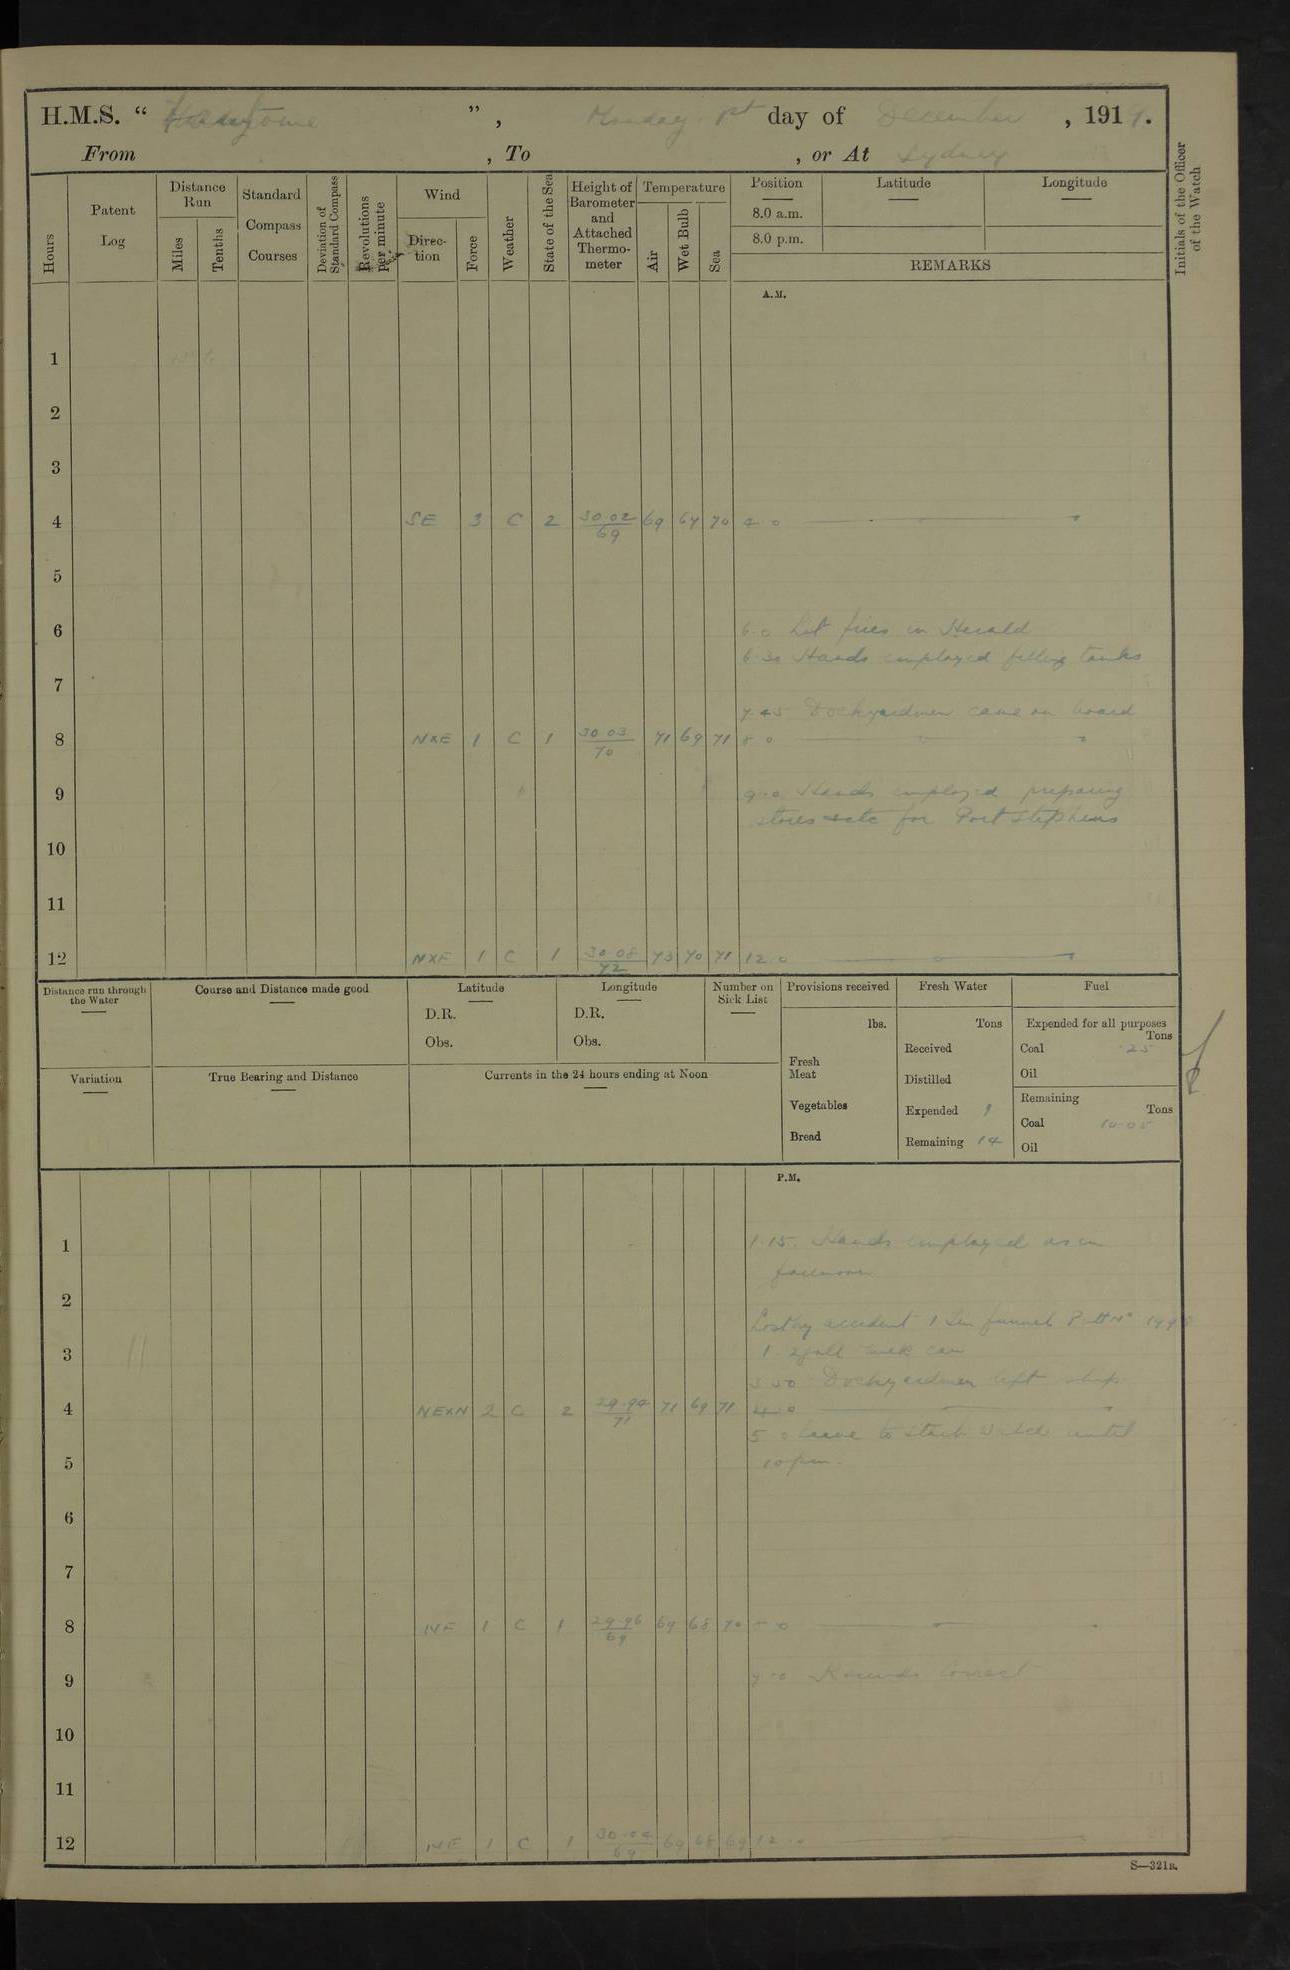 H.M.S. “ Fantome ”, Monday 1st day of December, 1919.
From , To , or At Sydney
Hours
Patent Log
Distance Run
Miles
Tenths
Standard Compass Courses
Deviation of Standard Compass
Revolutions per minute
Wind
Direction
Force
Weather
State of the Sea
Height of Barometer and Attached Thermometer
Temperature
Air
Wet Bulb
Sea
Position
8.0 a.m.
8.0 p.m.
Latitude
Longitude
REMARKS
Initials of the Officer of the Watch
A.M.
1
2
3
4 SE 3 C 2 30.02/69 69 67 70 4.0
5
6 6.0 Lit fires in Herald
6.30 Hands employed filling tanks
7
7.45 Dockyardmen came on board
8 NXE 1 C 1 30.03/70 71 69 71 8 0
9 9.0 Hands employed preparing
stores & etc for Port Stephens
10
11
12 NXE 1 C 1 30.08/72 73 70 71 12.0
Distance run through the Water
Course and Distance made good
Latitude
D.R.
Obs.
Longitude
D.R.
Obs.
Number on Sick List
Provisions received
lbs.
Fresh Meat
Vegetables
Bread
Fresh Water
Tons
Received
Distilled
Expended 1
Remaining 14
Fuel
Expended for all purposes
Tons
Coal .25
Oil
Remaining
Tons
Coal 10.05
Oil
Variation
True Bearing and Distance
Currents in the 24 hours ending at Noon
P.M.
1 1.15. Hands employed as in
forenoon
2
Lost by accident 1 funnel Patt No
3 1 2 gall can
3.50 Dockyardmen left ship
4 NEXN 2 C 2 29.94/71 71 69 71 4.0
5.0 Leave to Starb Watch until
5 10 pm.
6
7
8 NE 1 C 1 29.96/69 69 68 70 8 0
9 9.0 Rounds Correct
10
11
12 NE 1 C 1 30.02/69 69 68 69 12.0
S—321B.